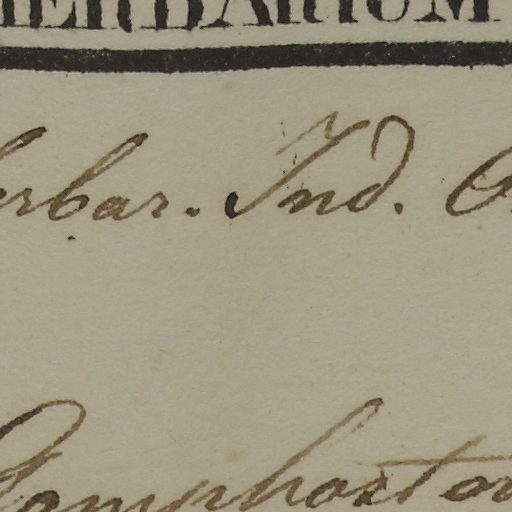 HERBARIUM
erbar. Ind. O
Gomphostem